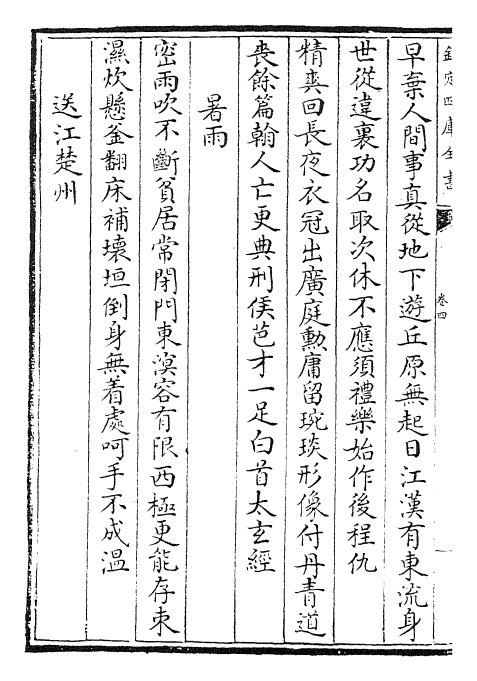 欽定四庫全書
卷四
早棄人間事真從地下遊丘原無起日江漢有東流身
世從違裏功名取次休不應須禮樂始作後程仇
精爽回長夜衣冠出廣庭勲庸留琬琰形像付丹青道
喪餘篇翰人亡更典刑侯芭才一足白首太玄經
暑雨
密雨吹不斷貧居常閉門東溟容有限西極更能存束
濕炊懸釜翻床補壞垣倒身無着處呵手不成温
送江楚州